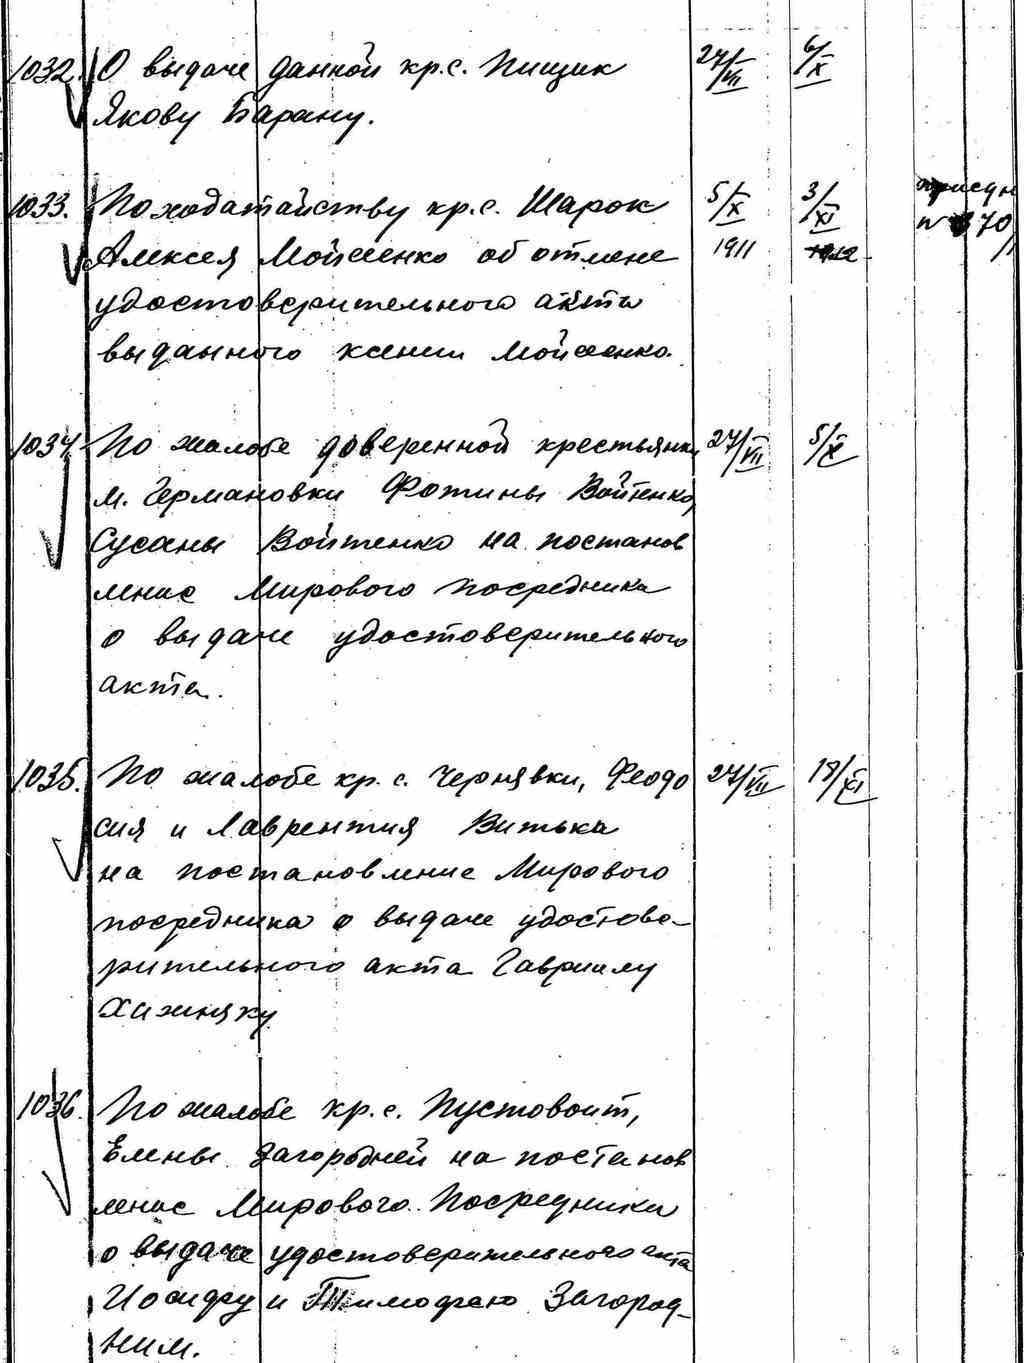 1032. О выдаче данной кр. с. Пищик 27/VII 6/X
Якову Барану.
1033. По ходатайству кр. с. Шарок 5/X 3/XI
Алексея Мойсеенко об отмене 1911 1912
удостоверительного акта № 370
выданного Ксении Мойсеенко.
1034. По жалобе доверенной крестьянки 27/VII 5/X
м. Германовки Фотины Войтенко,
Сусаны Войтенко на постанов
ление Мирового посредника
о выдаче удостоверительного
акта.
1035. По жалобе кр. с. Чернявки, Феодо 27/VII 18/XI
сия и Лаврентия Витька
на постановление Мирового
посредника о выдаче удостове-
рительного акта Гавриилу
Хижняку
1036. По жалобе кр. с. Пустовоит,
Елены Загородней на постанов
ление Мирового Посредника
о выдаче удостоверительного акта
Иосифу и Тимофею Загород-
ним.